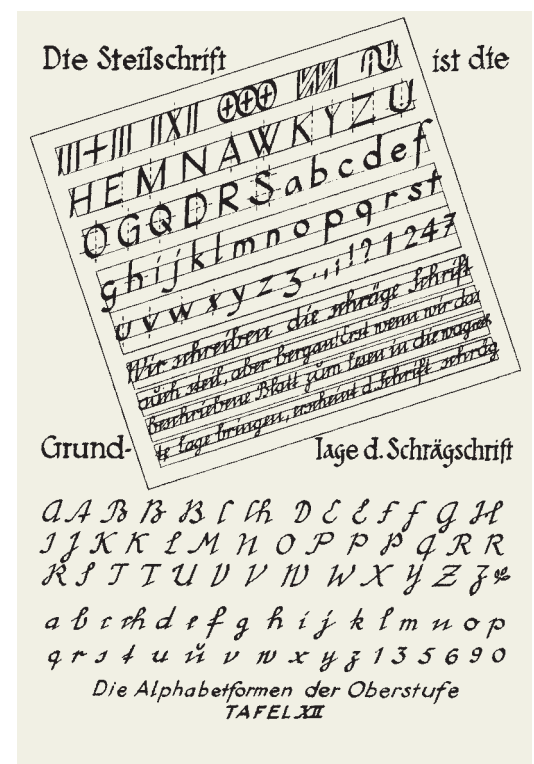 Die Steilschrift ist die
HEMNAWKYZU
OGQDRSabcdef
ghijklmnopqrst
uvwxyz3.,¡!?1247
Wir schreiben die schräge Schrift
auch steil, aber bergan! Erst wenn wir das
beschriebene Blatt zum Lesen in die waagrech
te Lage bringen, erscheint d. Schrift schräg
Grund- lage d. Schrägschrift
A A B B B C Ch D E E F F G H
I J K K L M N O P P P Q R R
R S T T U V V W W X Y Z Z &
a b c ch d e f g h i j k l m n o p
q r s t u ŭ v w x y z 1 3 5 6 9 0
Die Alphabetformen der Oberstufe
TAFEL XII